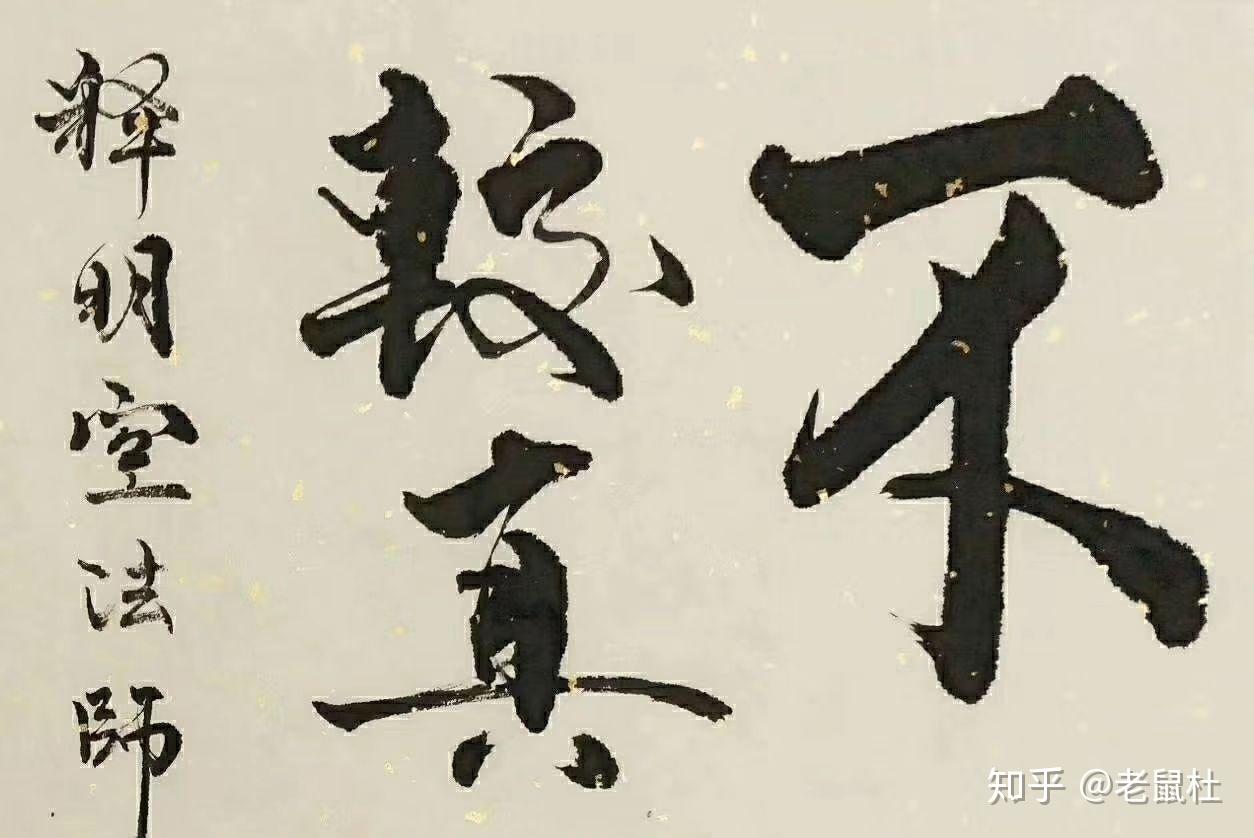 不
較真
释明空法師
知乎 @老鼠杜